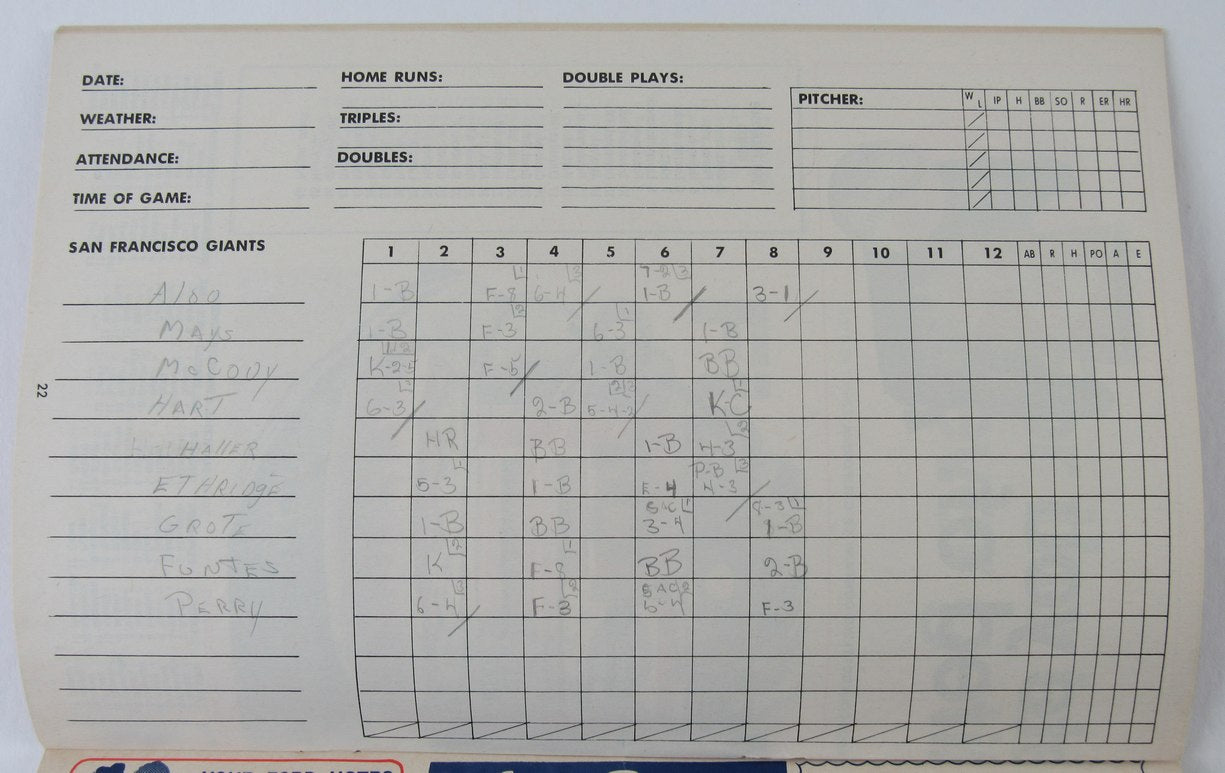 DATE: HOME RUNS: DOUBLE PLAYS:
PITCHER: W L IP H BB SO R ER HR
WEATHER: TRIPLES:
ATTENDANCE: DOUBLES:
TIME OF GAME:
SAN FRANCISCO GIANTS
1 2 3 4 5 6 7 8 9 10 11 12 AB R H PO A E
1 3 7-2 3
Aloo 1-B F-8 6-4 1-B 3-1
2 1
Mays 1-B F-3 6-3 1-B
McCovy K-2-5 F-5 1-B BB
HART 6-3 2-B 5-4-3 K-C
2
HALLER HR BB 1-B 4-3
P-B 3
ETHRIDgE 5-3 1-B E-4 4-3
SAC 1 8-3 1
GROTE 1-B BB 3-4 1-B
2 1
FUNTES K F-8 BB 2-B
3 2 SAC 2
PERRY 6-4 F-3 F-3
22